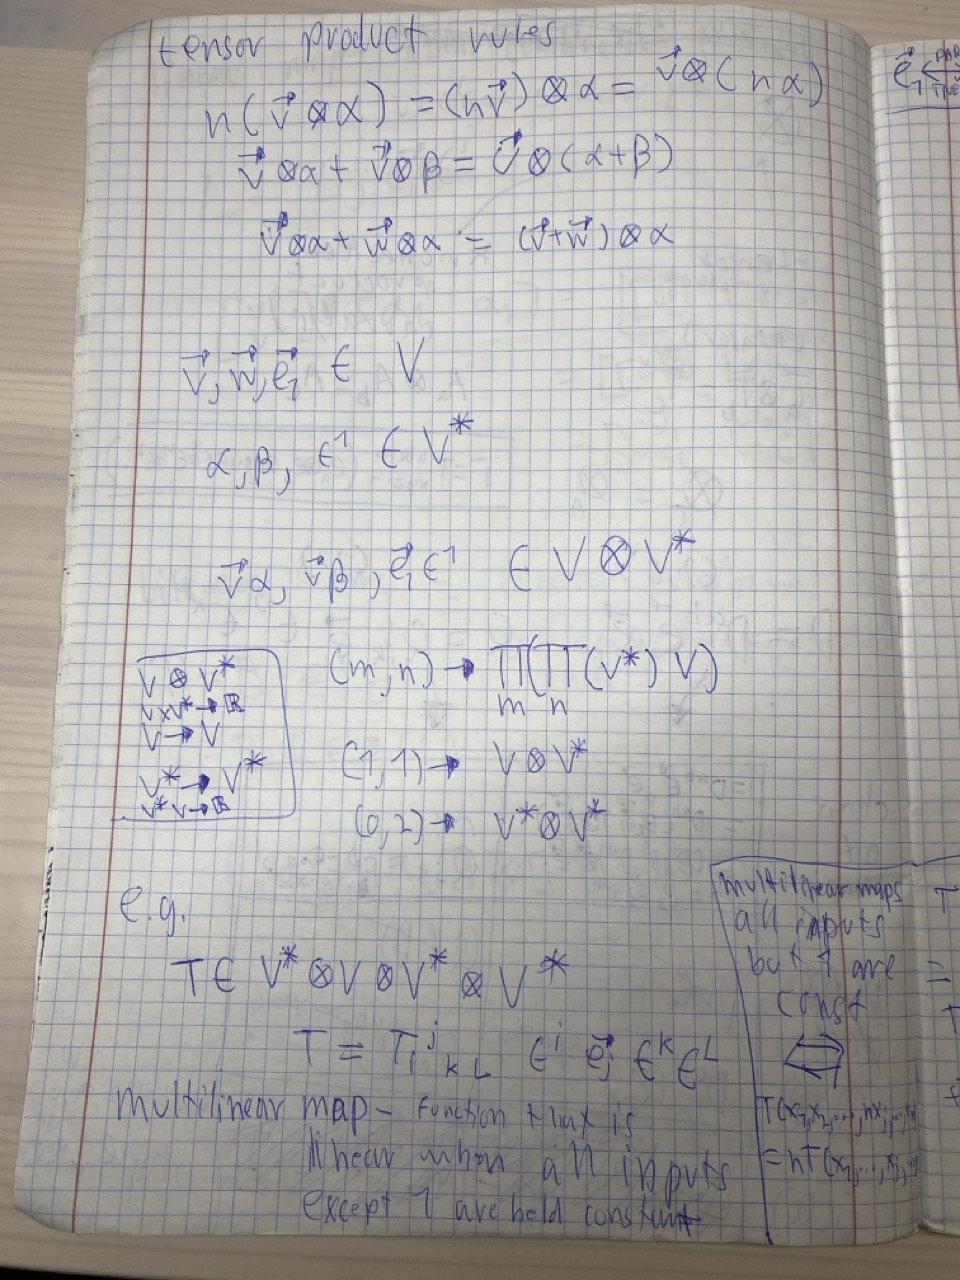 tensor product rules
n(v⃗ ⊗ α) = (nv⃗) ⊗ α = v⃗ ⊗ (nα)
v⃗ ⊗ α + v⃗ ⊗ β = v⃗ ⊗ (α+β)
v⃗ ⊗ α + w⃗ ⊗ α = (v⃗+w⃗) ⊗ α
v⃗, w⃗, e⃗₁ ∈ V
α, β, ϵ¹ ∈ V*
v⃗α, v⃗β, e⃗₁ϵ¹ ∈ V ⊗ V*
V ⊗ V*
V×V* → ℝ
V → V
V* → V*
V* V → ℝ
(m,n) → ∏(∏(V*) V)
m n
(1,1) → V ⊗ V*
(0,2) → V* ⊗ V*
e.g.
T ∈ V* ⊗ V ⊗ V* ⊗ V*
T = Tᵢʲₖ_L ϵⁱ e⃗ⱼ ϵᵏ ϵᴸ
multilinear map - function that is
linear when all inputs
except 1 are held constant
multilinear maps
all inputs
but 1 are
const
⟺
e⃗₁
T
=